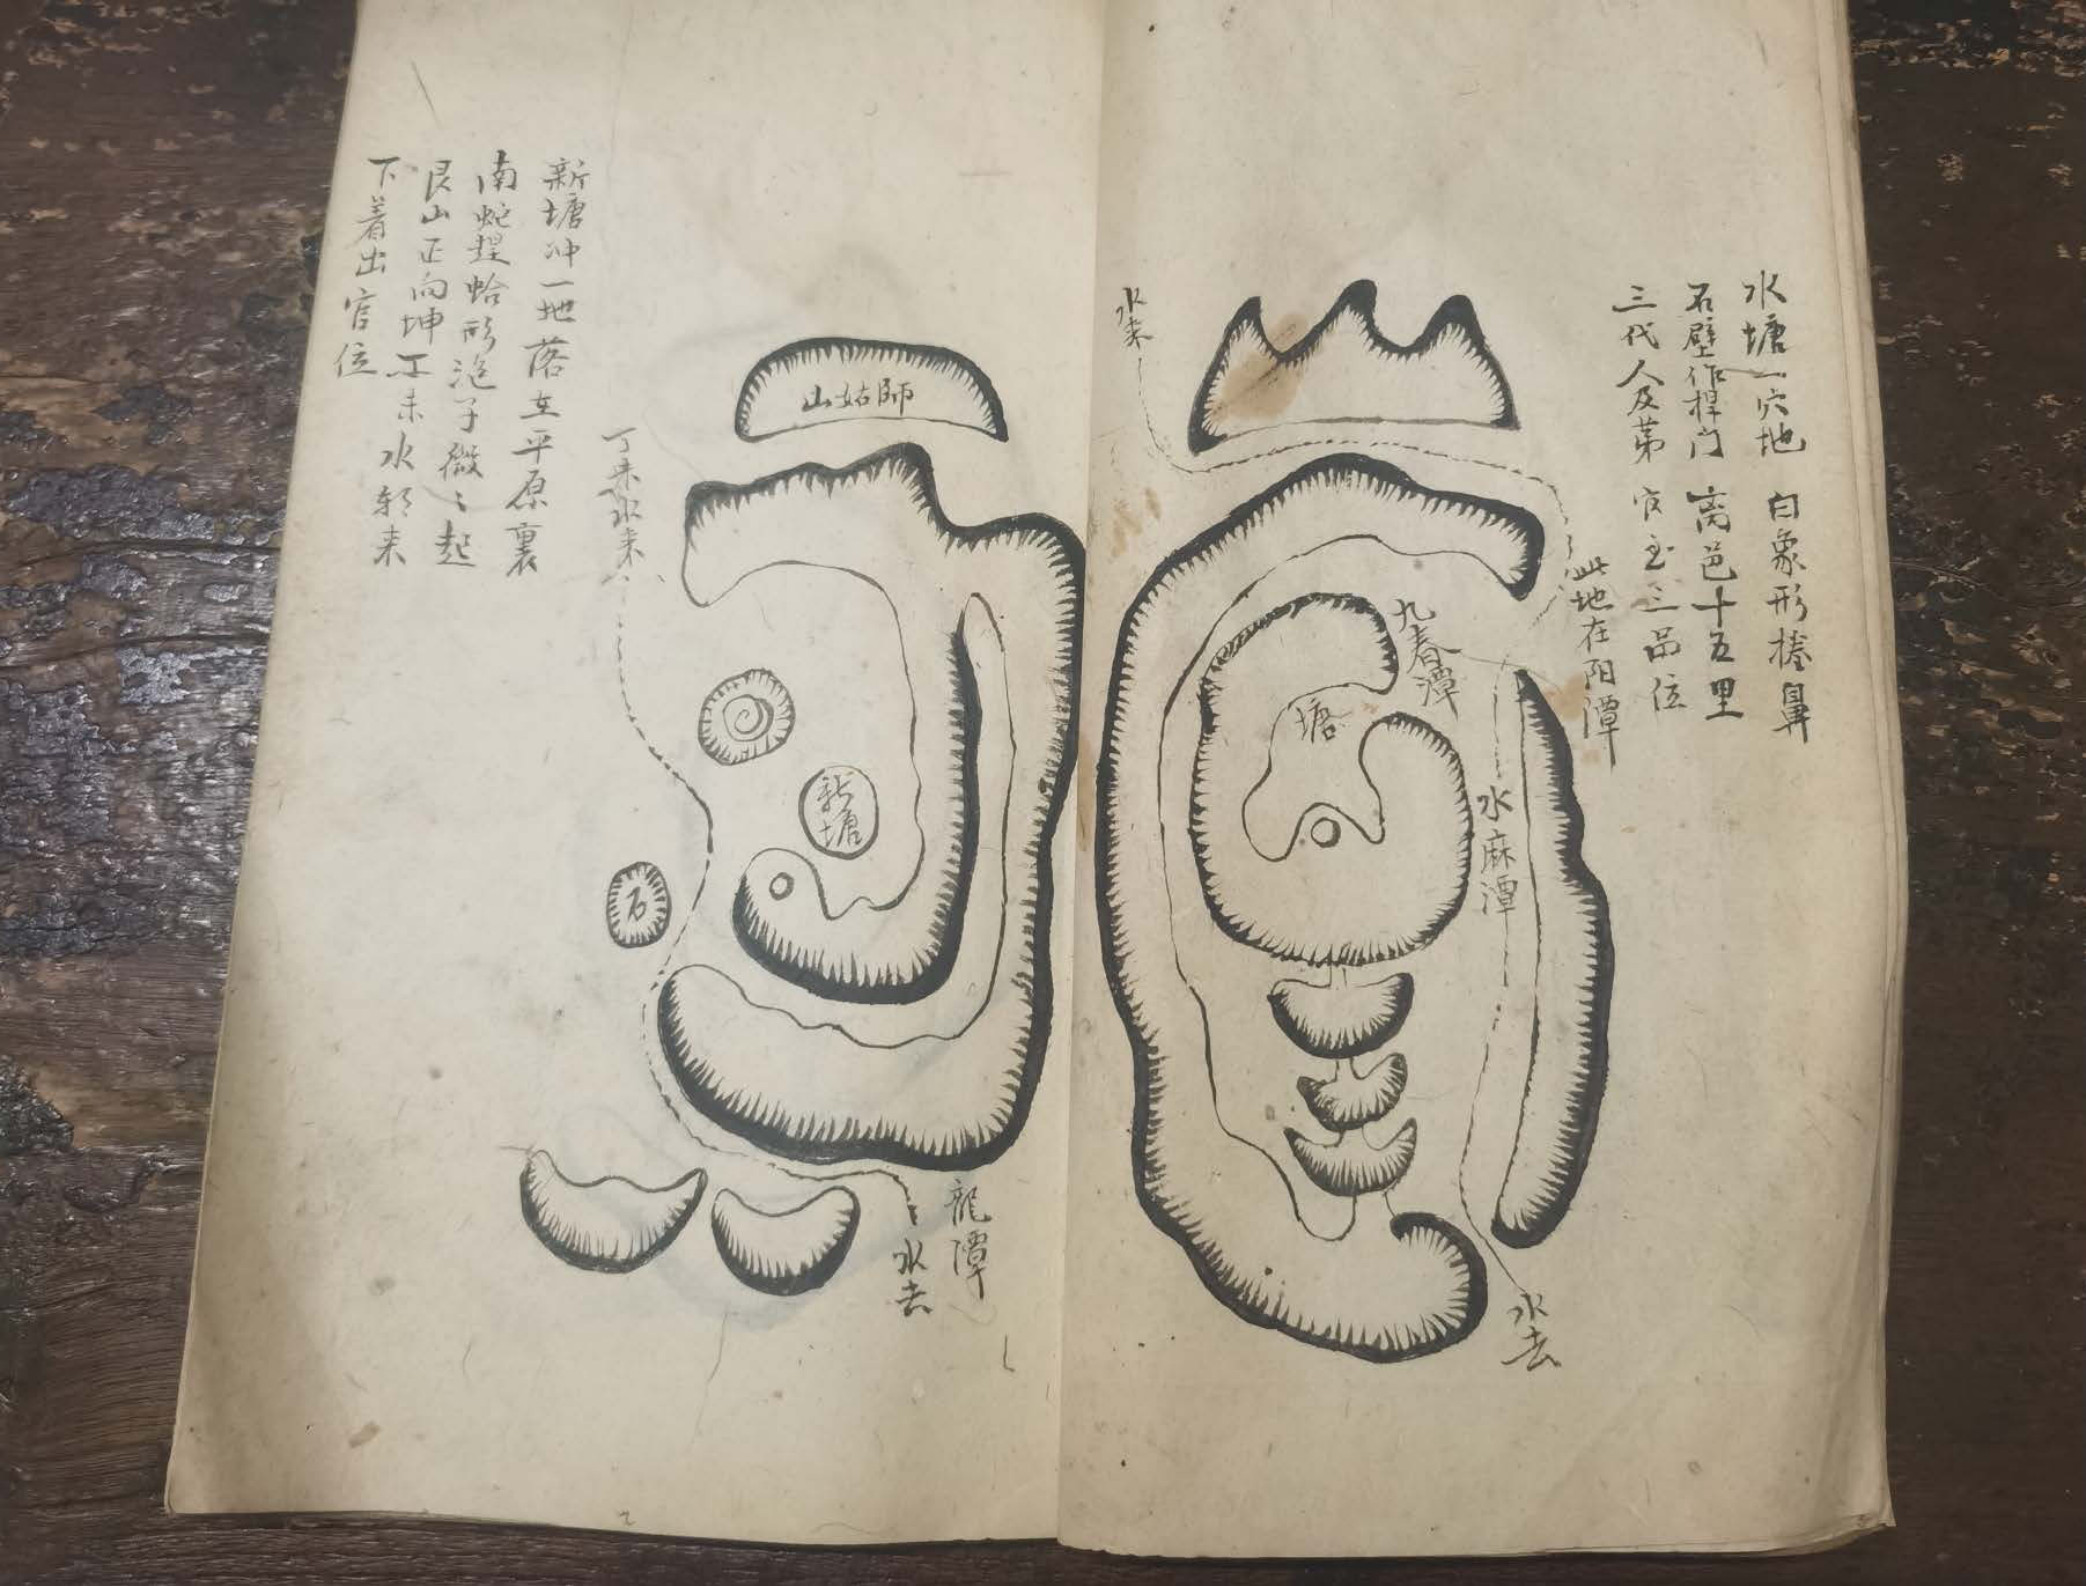 水塘一穴地 白象形捲鼻
石壁作捍门 离邑十五里
三代人及第 官至三品位
此地在阳潭
水来
九春潭
塘
水麻潭
水去
新塘冲一地落在平原裏
南蛇趕蛤形泡子微々起
艮山正向坤丁未水朝来
下着出官位
山姑師
丁未水来
新塘
石
龍潭
水去